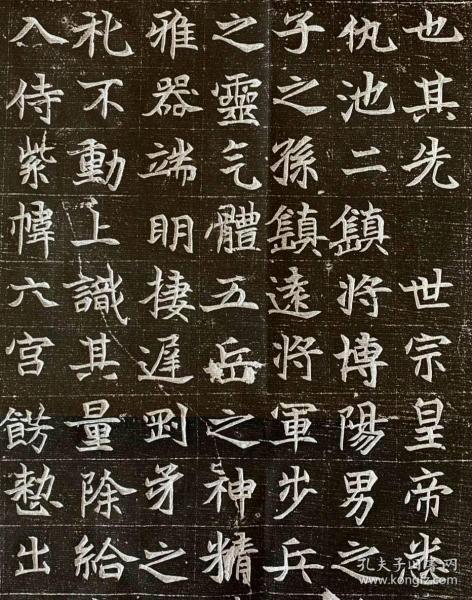 也其先 世宗皇帝
仇池二鎮將博陽男之
子之孫鎮遠將軍步兵
之靈气體五岳之神精
雅器端明捿遲剛矛之
札不動上識其量除給
入侍紫幃六宮餝懃出
孔夫子旧书网
www.kongfz.com